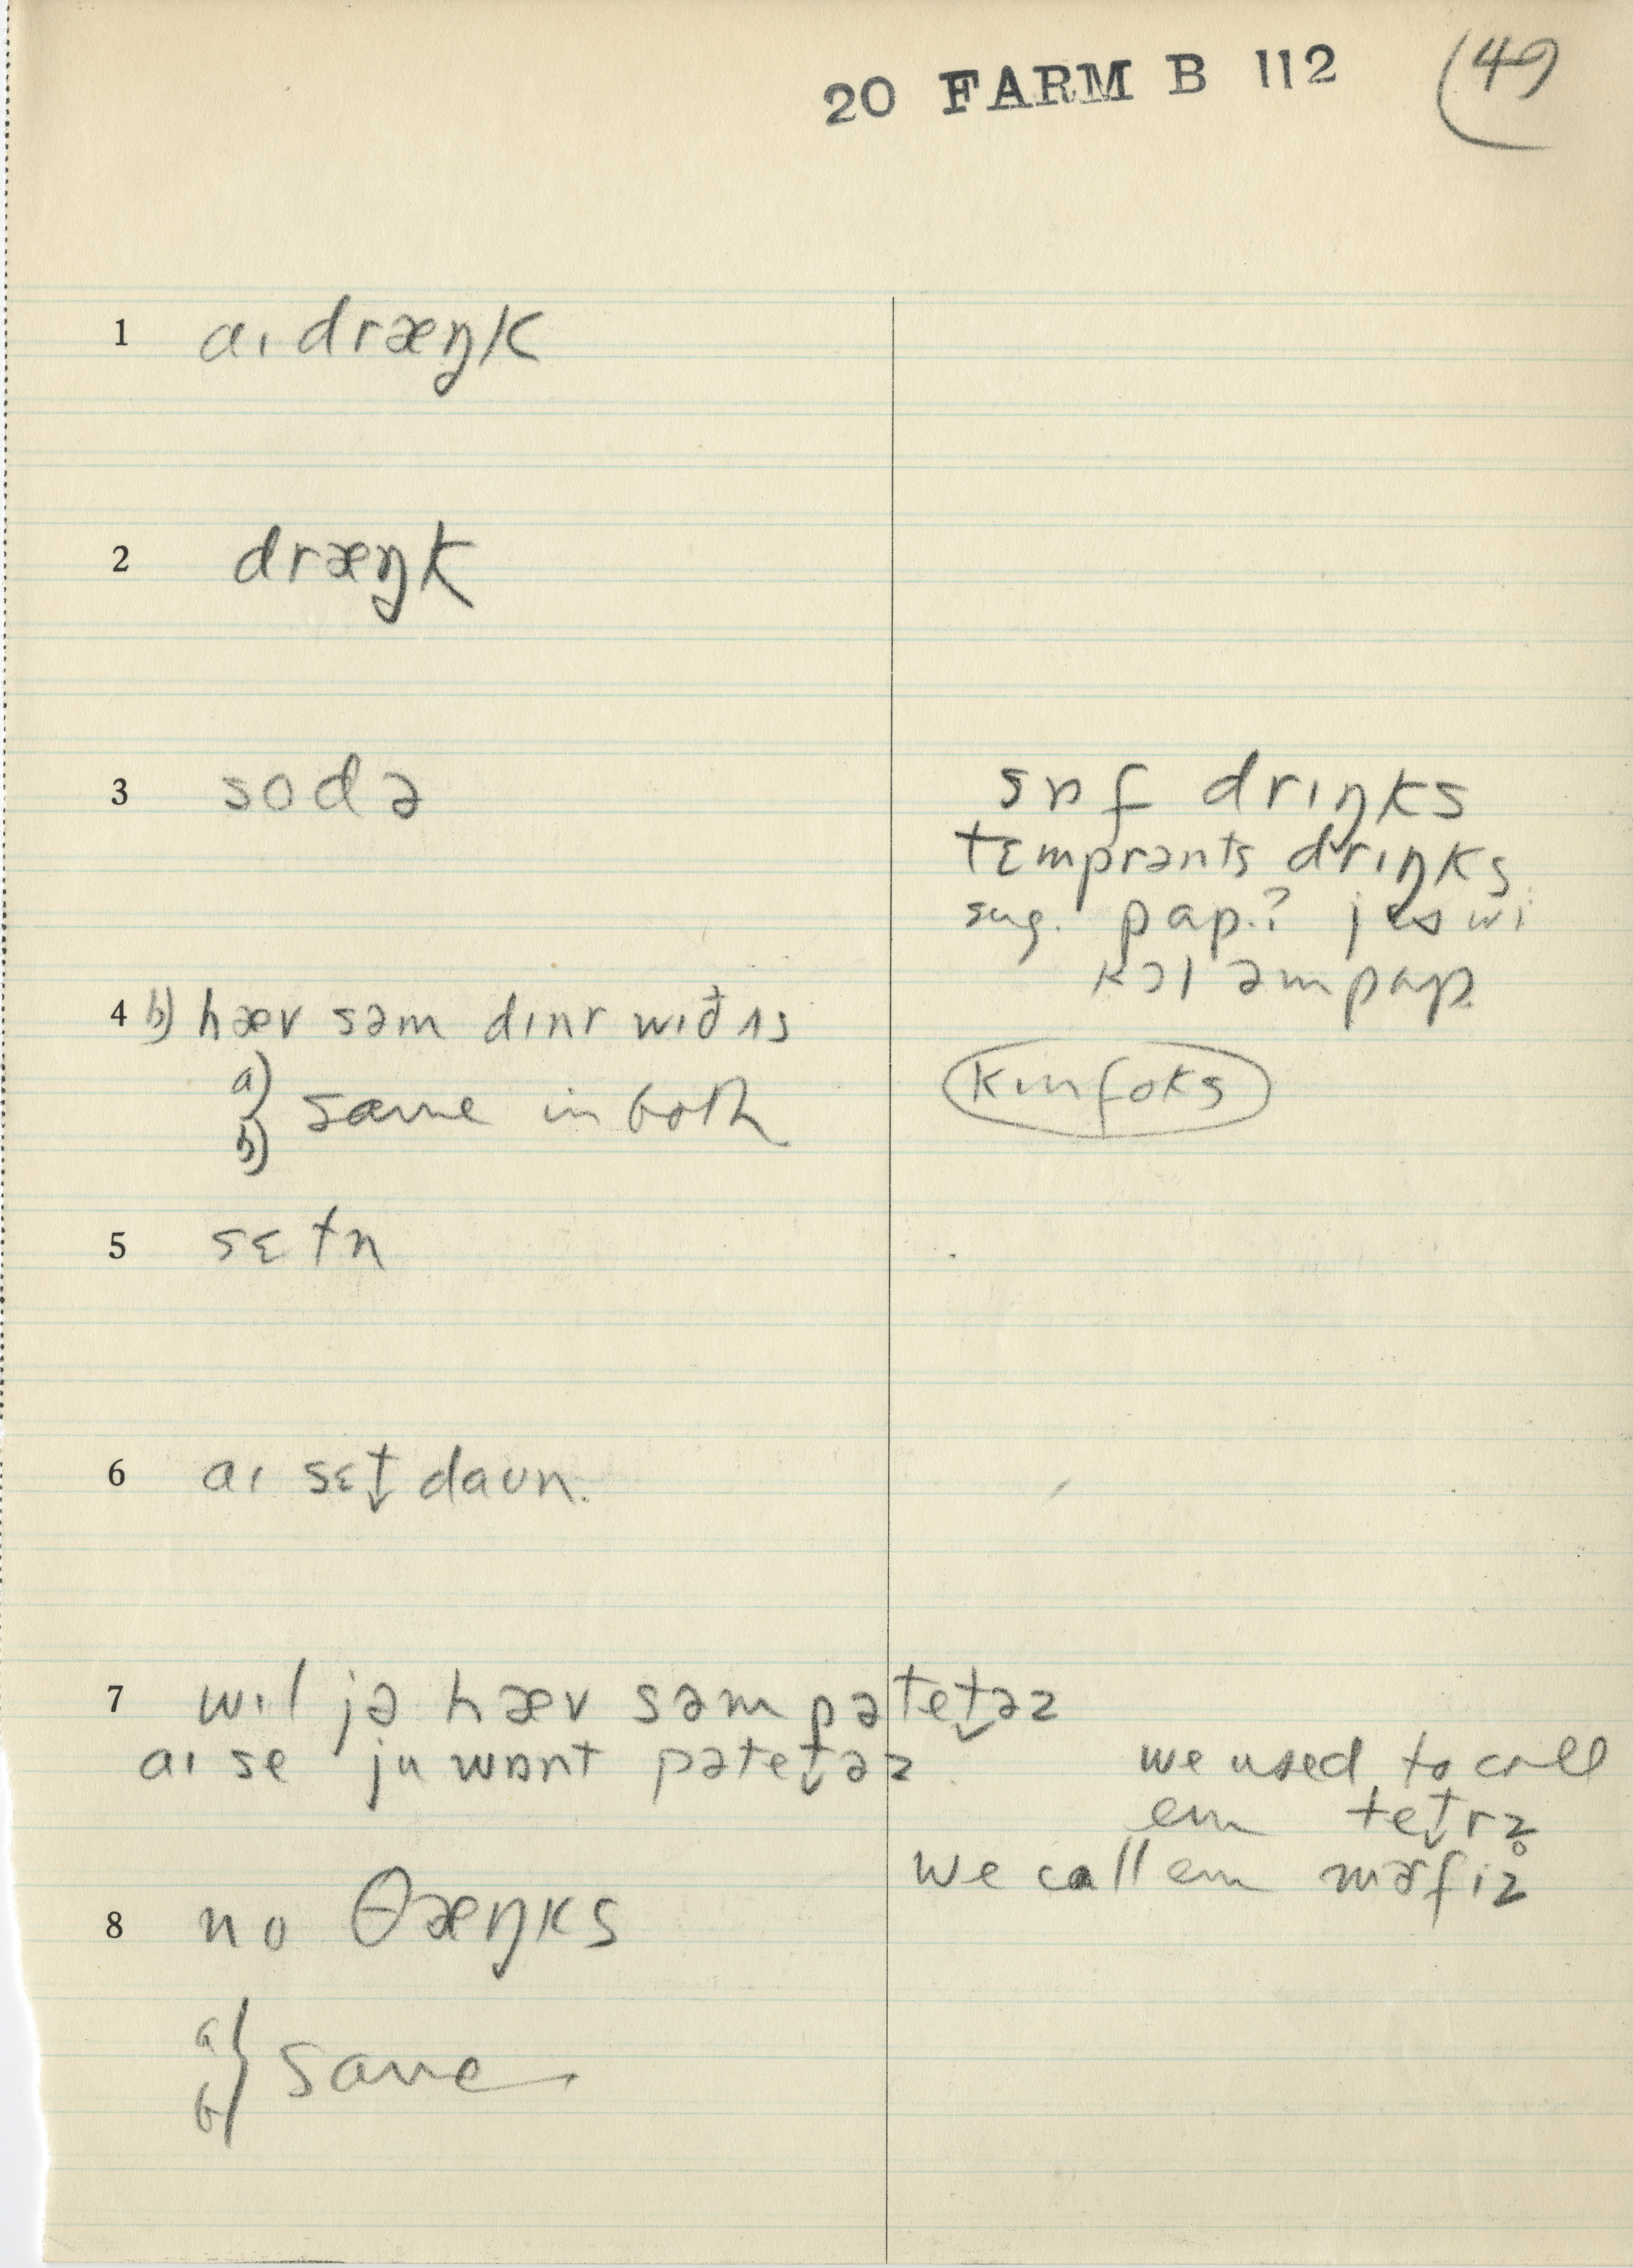 20 FARM B 112 (49)
1 aɪ dræŋk
2 dræŋk
3 sodə
sɒf drɪŋks
tɛmprənts drɪŋks
sug. pap.? jɛs wi
kɔl əm pap
4 b) hæv səm dɪnr wɪð ʌs
a)
b) } same in both
kɪnfoks
5 sɛtn
6 aɪ sɛt̬ daʊn.
7 wɪl jə hæv səm pətet̬əz
aɪ se ju wɒnt pətet̬əz
we used to call
em tet̬rz̥
we call em mɚfiz
8 no θæŋks
a
b } same